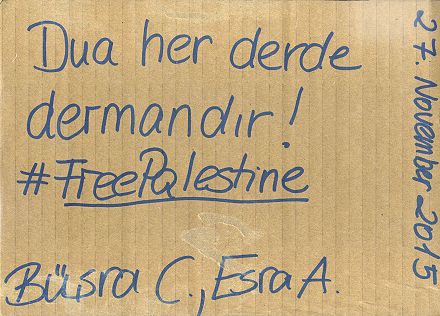 Dua her derde
dermandır!
#FreePalestine
Büsra C., Esra A.
27. November 2015